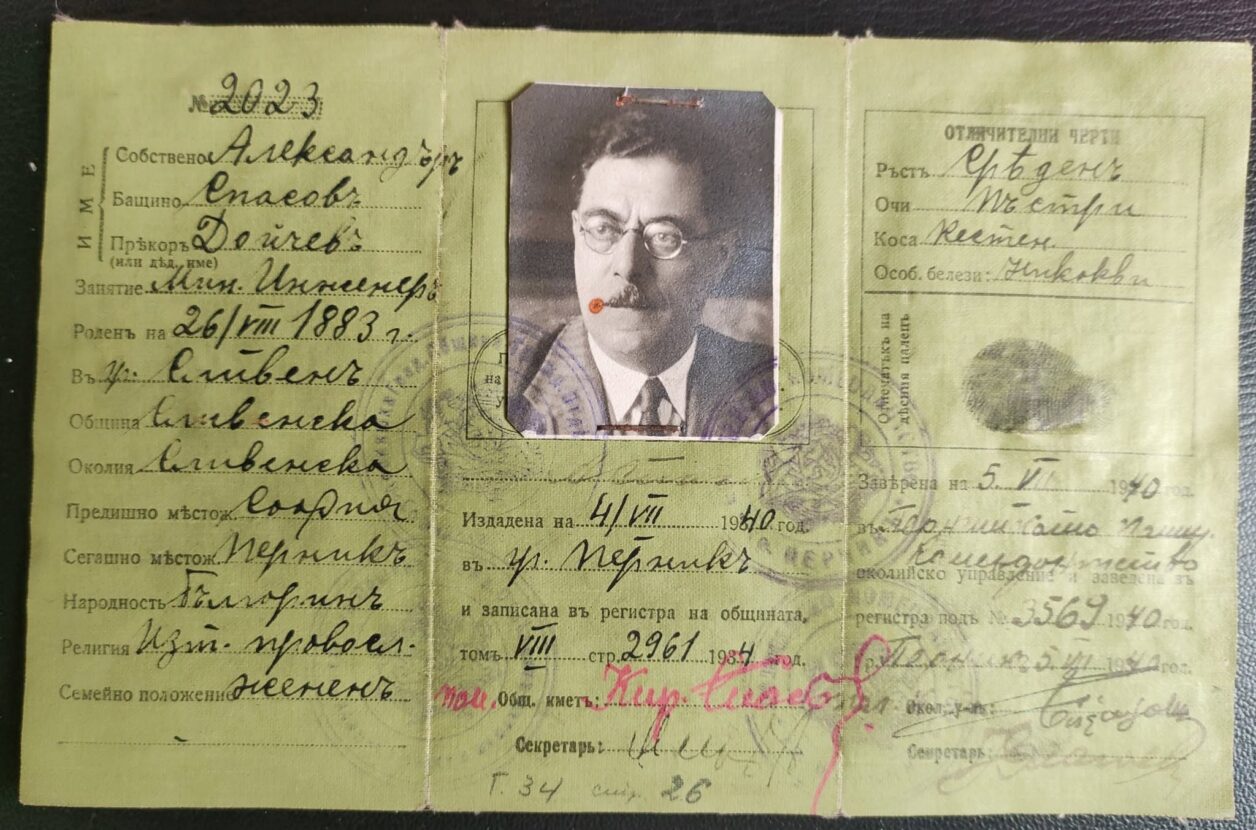 № 2023
ИМЕ
Собствено Александъръ
Бащино Спасовъ
Прѣкоръ Дойчевъ
(или дѣд. име)
Занятие Мин. Инженеръ
Роденъ на 26/VIII 1883 г.
Въ гр. Сливенъ
Община Сливенска
Околия Сливенска
Предишно мѣстож. София
Сегашно мѣстож. Перникъ
Народность Българинъ
Религия Изт. правосл.
Семейно положение жененъ
Издадена на 4/VII 1940 год.
въ гр. Перникъ
и записана въ регистра на общината,
томъ VIII стр. 2961 1934 год.
пом. Общ. кметъ: Кир.
Секретарь:
Т. 34 стр. 26
ОТЛИЧИТЕЛНИ ЧЕРТИ
Ръстъ Срѣденъ
Очи Пъстри
Коса Кестен.
Особ. белези: никакви
Отпечатъкъ на
дѣсния палецъ
Завѣрена на 5. VII 1940 год.
въ
околийско управление и заведена въ
регистра подъ № 3569 1940 год.
гр. 5. VII 1940 год.
Окол. у-къ:
Секретарь: